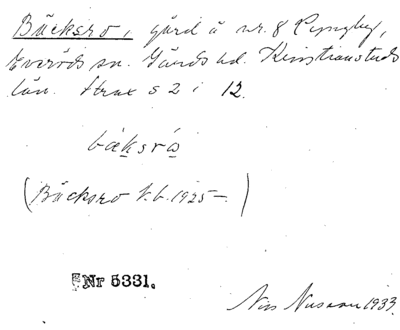 Bäcksro, gård å nr. 8 Rynglby,
Everöds sn. Gärds hd. Kristianstads
län. Strax S 2 i 12.
bæksrọ
(Bäcksro k.b. 1925–)
Nr 5331.
Nils 1933